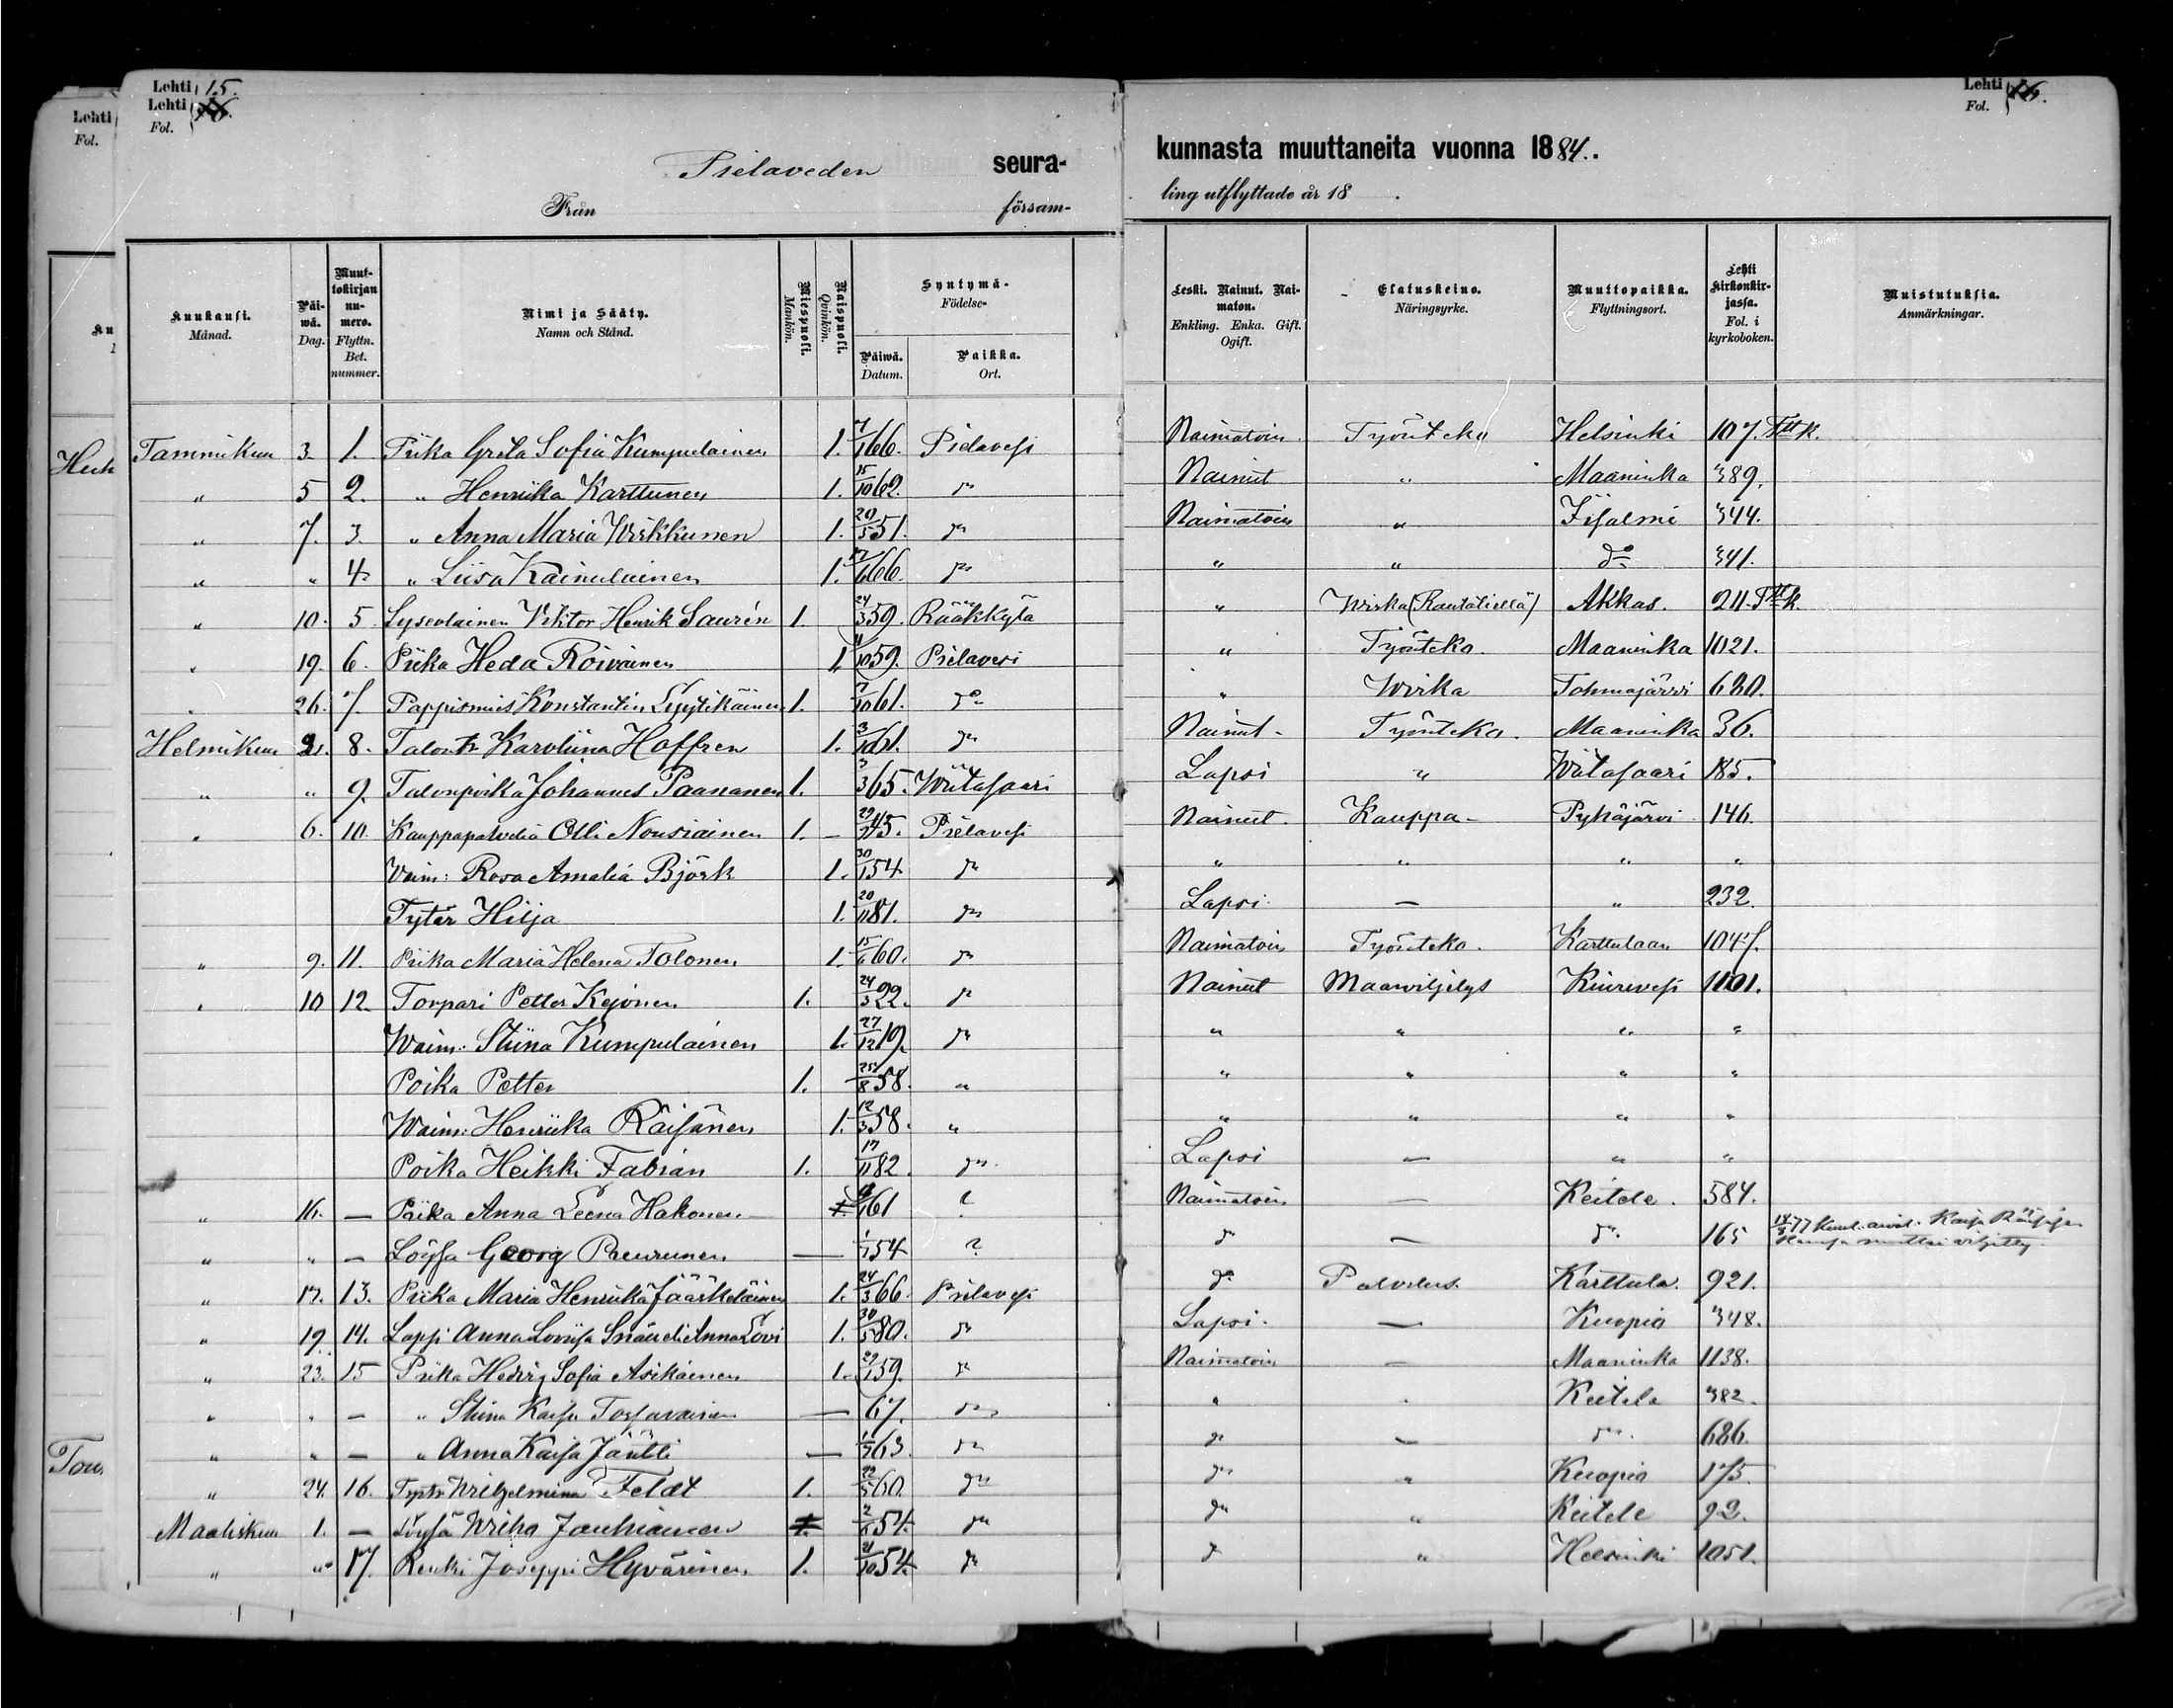 Lehti 15.
Lehti
Fol.
Lehti
Fol.
Lehti 16.
Fol.
Pielaveden seura-
kunnasta muuttaneita vuonna 1884.
Från församling utflyttade år 18 .
Kuukausi. Månad.
Päiwä. Dag.
Muuttokirjan numero. Flyttn. Bet. nummer.
Nimi ja Sääty. Namn och Stånd.
Miespuoli. Mankön.
Naispuoli. Qvinkön.
Syntymä- Födelse-
Päiwä. Datum.
Paikka. Ort.
Leski. Nainut. Naimaton. Enkling. Enka. Gift. Ogift.
Elatuskeino. Näringsyrke.
Muuttopaikka. Flyttningsort.
Lehti kirkonkirjassa. Fol. i kyrkoboken.
Muistutuksia. Anmärkningar.
Tammikuu 3. 1. Piika Greta Sofia Kumpulainen 1. 7/1 66. Pielavesi Naimatoin Työnteko Helsinki 107.
" 5 2. " Henriika Karttunen 1. 15/10 62. do Nainut " Maaninka 389.
" 7. 3. " Anna Maria Wirkkunen 1. 20/5 51. do Naimatoin " Iisalmi 344.
" " 4. " Liisa Kainulainen 1. 17/6 66. do " " do 341.
" 10. 5. Lyseolainen Viktor Henrik Saurén 1. 24/3 59. Rääkkylä " Wirka (Rautatiellä) Akkas. 211.
" 19. 6. Piika Heda Roivainen 1. 11/10 59. Pielavesi " Työnteko. Maaninka 1021.
" 26. 7. Pappismies Konstantin Lyytikäinen 1. 7/10 61. do " Wirka Tohmajärvi 680.
Helmikuu 2. 8. Talontr Karoliina Hoffren 1. 3/10 61. do Nainut Työnteko. Maaninka 36.
" " 9. Talonpoika Johannes Paananen 1. 3/3 65. Wiitasaari Lapsi " Wiitasaari 185.
" 6. 10. Kauppapalvelia Olli Nousiainen 1. 45. Pielavesi Nainut. Kauppa Pyhäjärvi 146.
Waim: Rosa Amalia Björk 1. 30/1 54 do " " " "
Tytär Hilja 1. 20/11 81. do Lapsi — " 232.
" 9. 11. Piika Maria Helena Tolonen 1. 15/6 60. do Naimatoin Työnteko. Karttulaan 1047.
" 10 12. Torpari Petter Kejonen 1. 24/3 22. do Nainut Maanviljelys Kiuruvesi 1101.
Waim: Stiina Kumpulainen 1. 27/12 19. do " " " "
Poika Petter 1. 25/8 58. " " " " "
Waim: Henriika Räisänen 1. 12/3 58. " " " " "
Poika Heikki Fabian 1. 17/11 82. do Lapsi — " "
" 16. — Piika Anna Leena Hakonen 61 ? Naimatoin — Keitele. 584.
" " — Löysä Georg Puurunen — 1/1 54 ? do — do 165
" 17. 13. Piika Maria Henriika Jääskeläinen 1. 24/3 66. Pielavesi do Palvelus. Karttula. 921.
" 19. 14. Lapsi Anna Loviisa 1. 30/5 80. do Lapsi. — Kuopio 348.
" 23. 15 Piika Hedvig Sofia Asikainen 1. 29/1 59. do Naimatoin — Maaninka 1138.
" " — " Stina Kaisa Tossavainen — 67. do " Keitele 382.
" " — " Anna Kaisa Jäntti — 63. do do — do 686.
" 24. 16. Wilhelmina Feldt 1. 60. do do " Kuopio 175.
Maaliskuu 1. — Löysä Wilho Jauhiainen 54. do do " Keitele 92.
" " 17. Renki Joseppi Hyvärinen 1. 21/10 54. do do " Helsinki 1051.